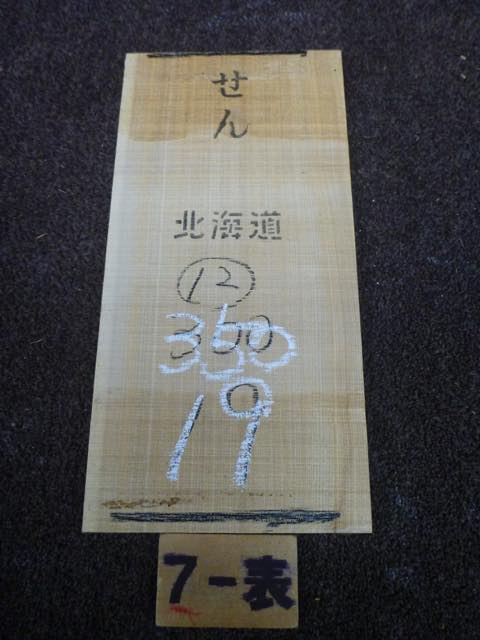 せん
北海道
12
350
19
7-表